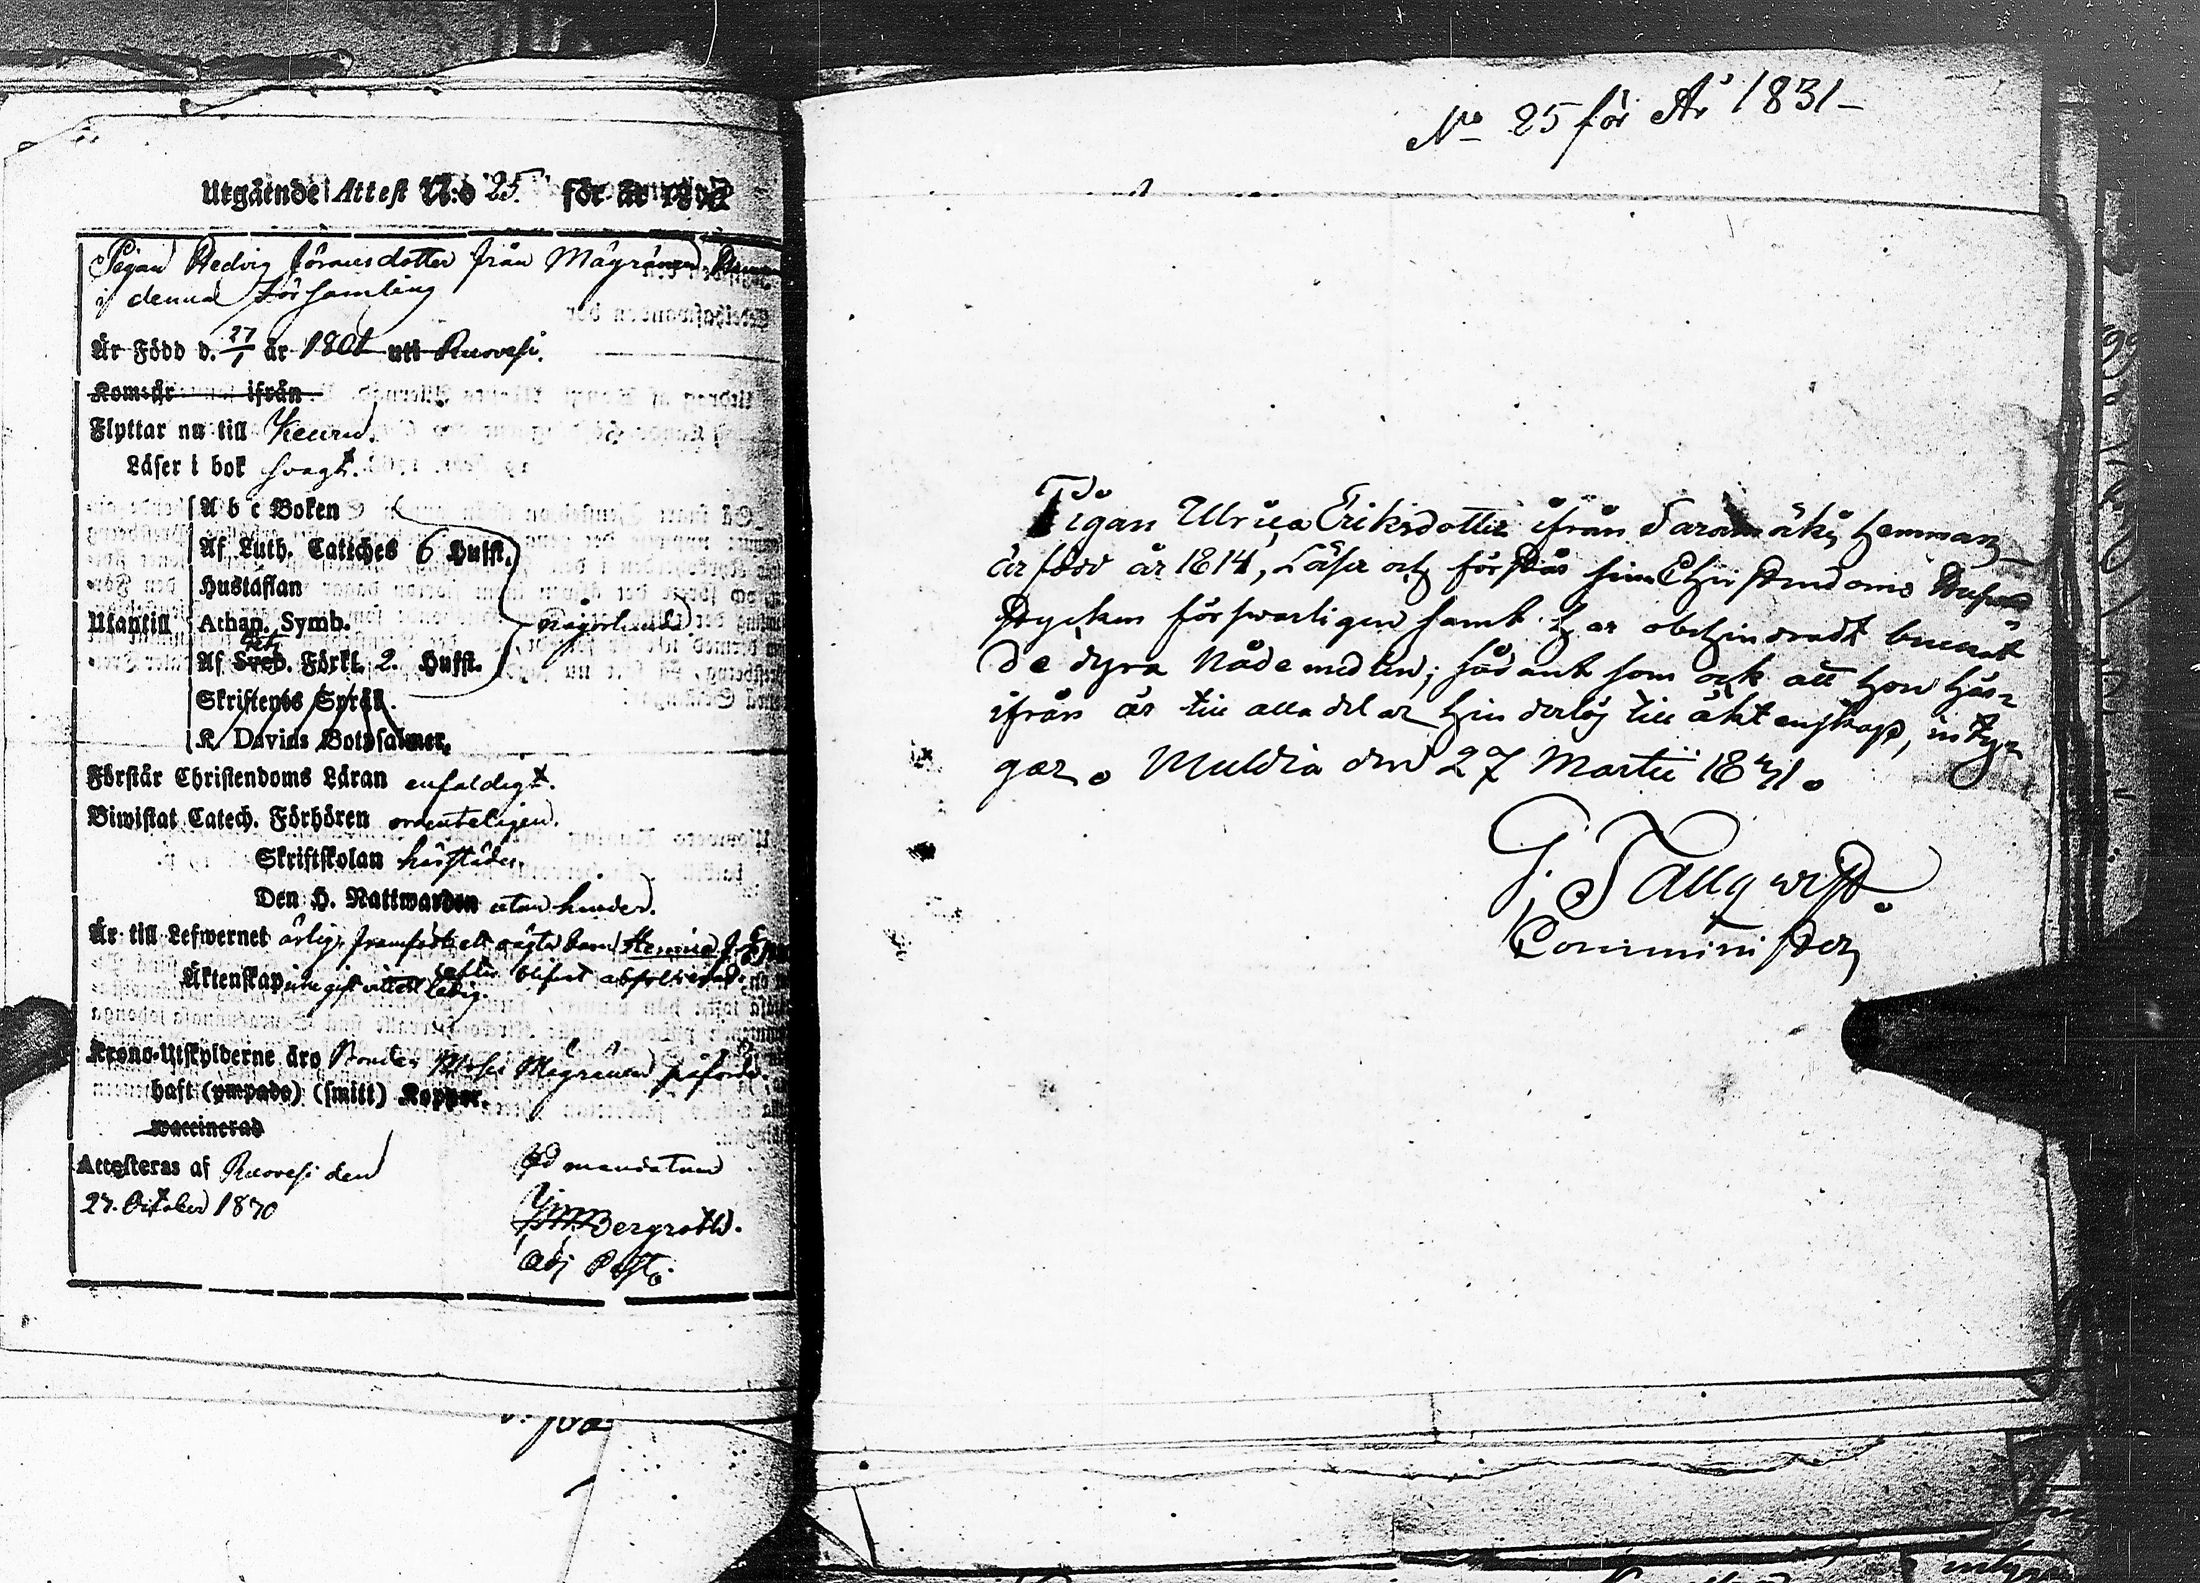 Utgående Attest N:o 25. för år 18
Pigan Hedvig Göransdotter från Mägränen
i denna Församling
Är Född d. 27/1 år 1801 uti Ruovesi.
Kom: år ifrån
Flyttar nu till Keuru.
Läser i bok svagt.
A b c Boken
Af Luth. Cateches 6 Hufst.
Hustaflan
Utantill Athan. Symb. någorlunda
Af Sveb. Förkl. 2. Hufst.
Skriftenes Språk.
K. Davids Botpsalmer.
Förstår Christendoms Läran enfaldigt.
Biwistat Catech. Förhören ordenteligen.
Skriftskolan härstädes.
Den H. Nattwarden utan hinder.
Är till Lefwernet ärlig, framfödt ett oägta barn
Äktenskap ledig.
Krono-Utskylderne äro Bonden Mägränen påförde.
haft (ympade) (smitt) Koppor.
waccinerad
Attesteras af Ruovesi den
27. October 1830
Ad mandatum
Bergroth.
Adj Past.
No 25 för År 1831
Pigan Ulrica Eriksdotter ifrån hemman
är född år 1814, Läser och förstår sina Christendoms
stycken försvarligen samt har obehindradt brukat
de dyra Nådemedlen; sådant som ock att hon här-
ifrån är till alla delar hinderlös till äktenskap, inty-
gar. Muldia den 27 Martii 1831.
G. Tallqwist.
Comminister